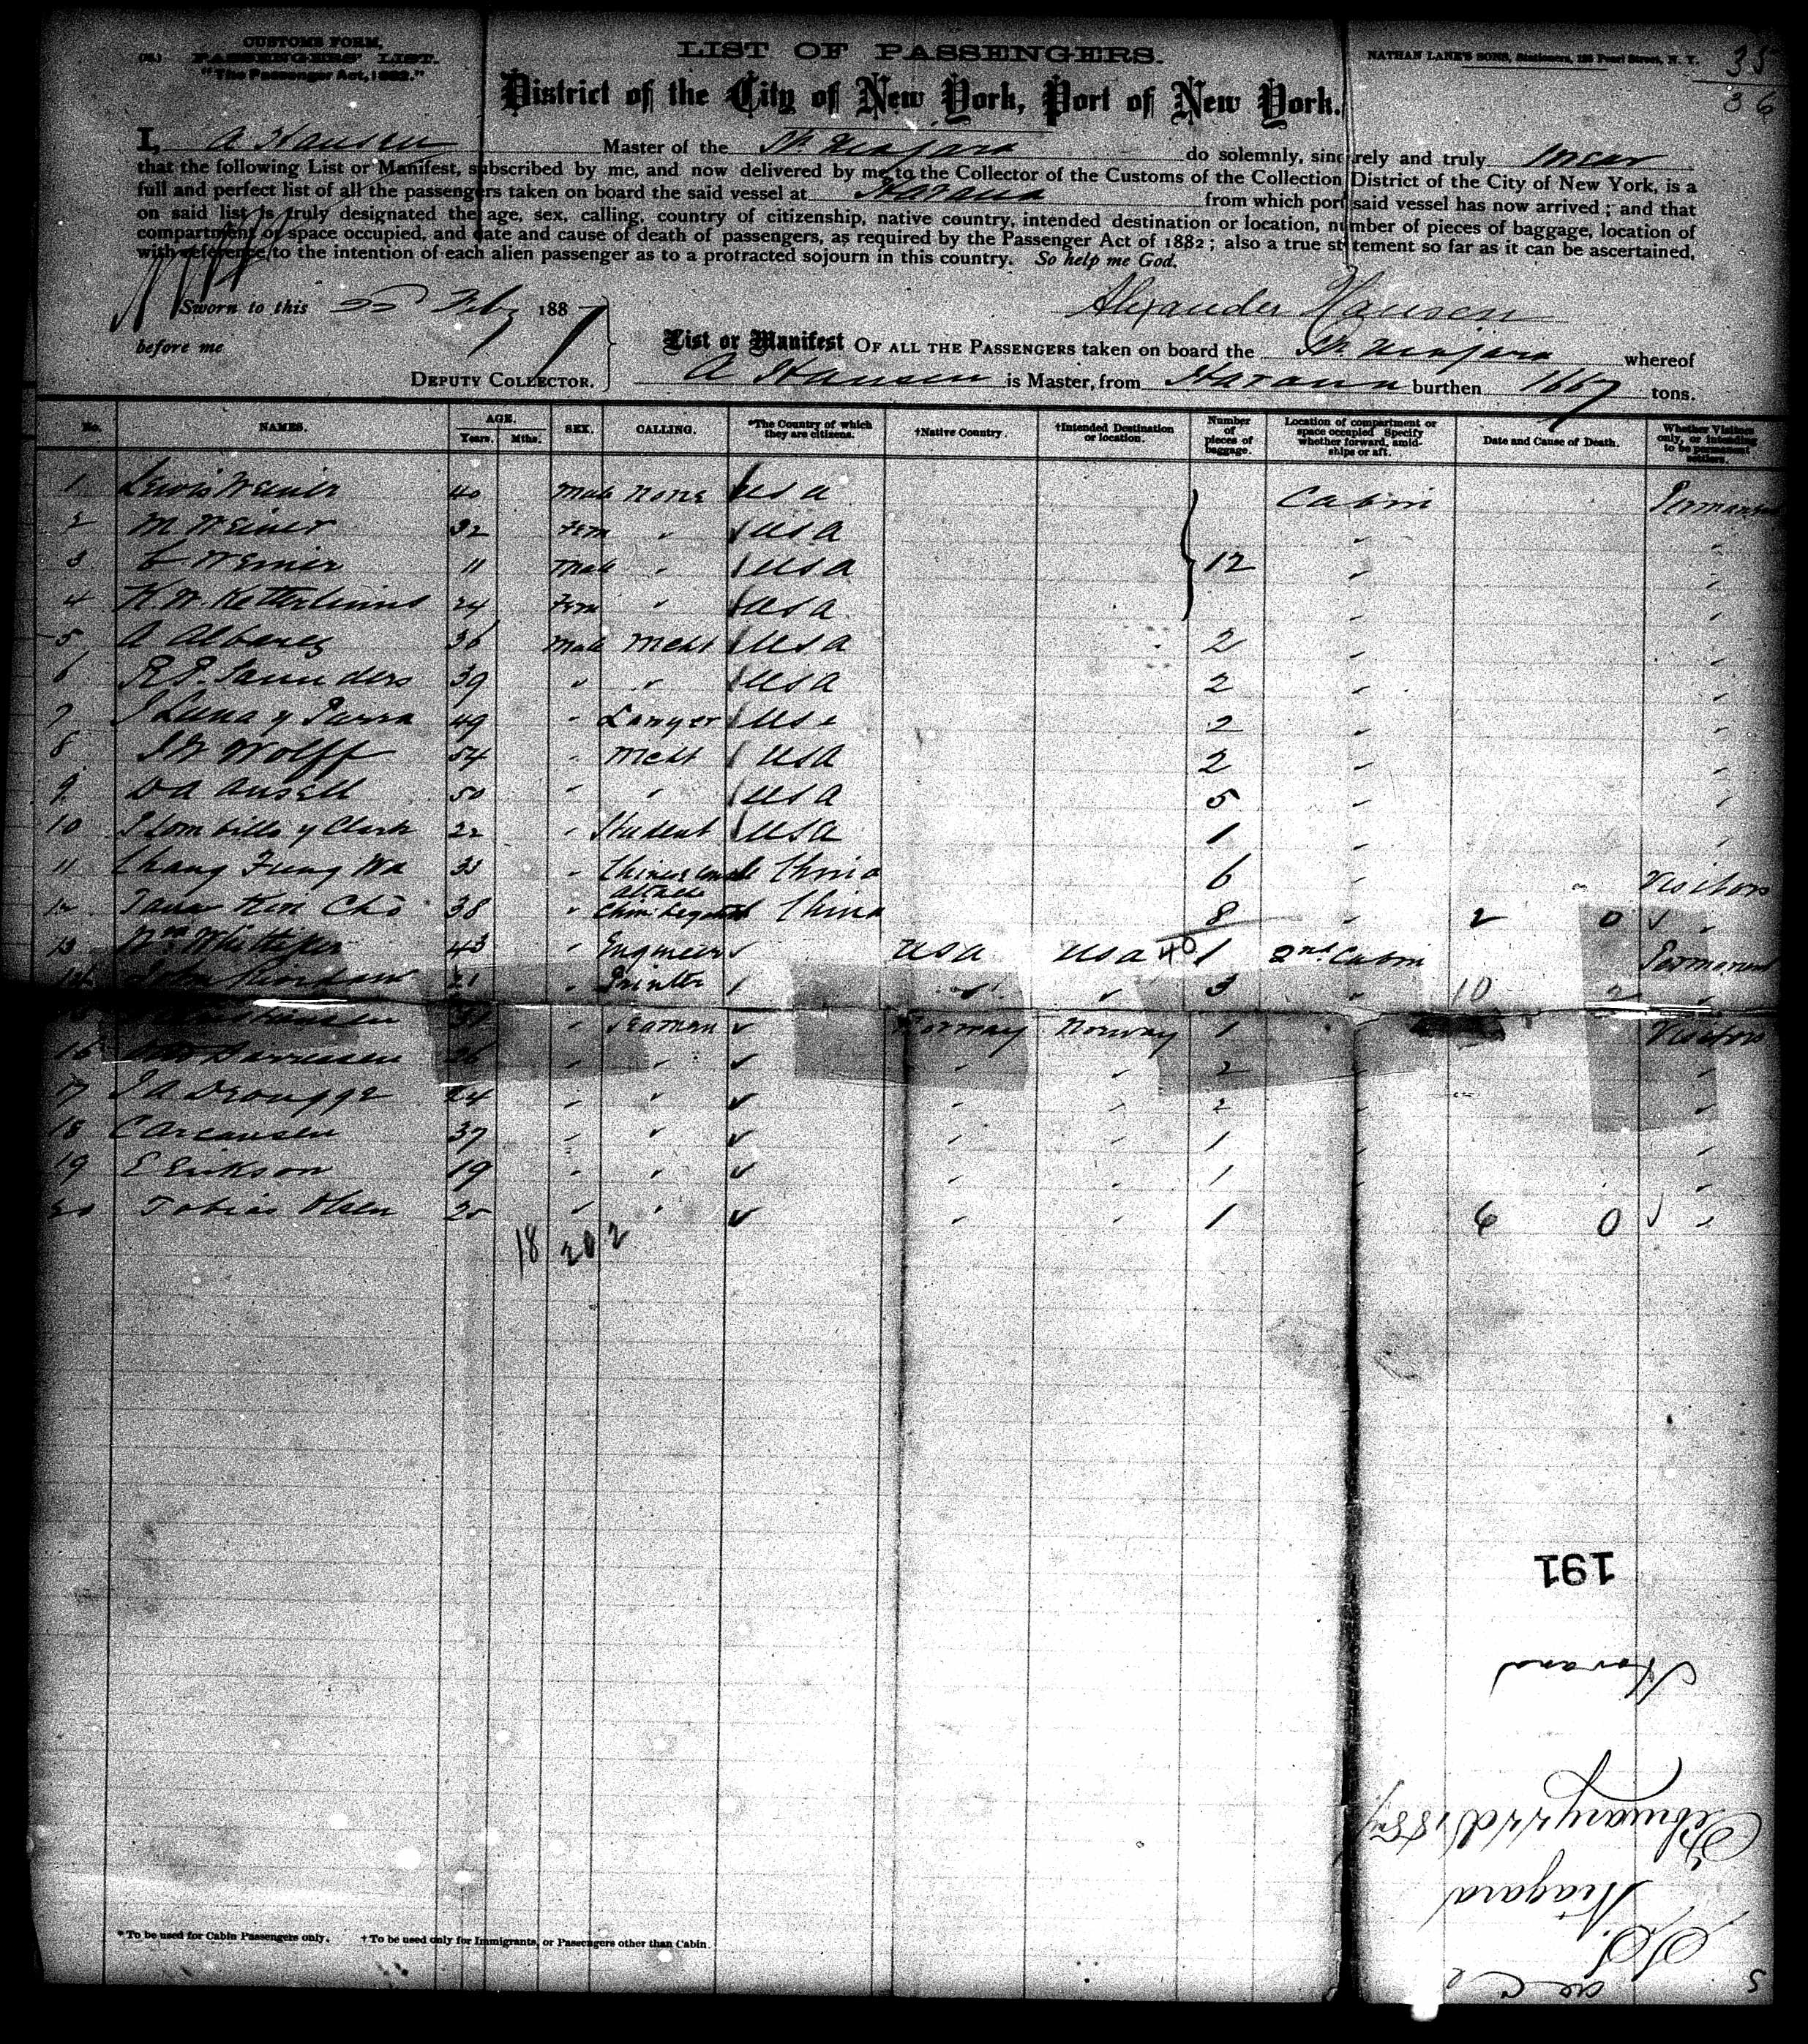 CUSTOMS FORM.
PASSENGERS' LIST.
"The Passenger Act, 1882."
LIST OF PASSENGERS.
NATHAN LANE'S SONS, Stationers, Pearl Street, N. Y.
35
36
District of the City of New York, Port of New York.
I, A Hansen Master of the Str Niagara do solemnly, sincerely and truly swear
that the following List or Manifest, subscribed by me, and now delivered by me to the Collector of the Customs of the Collection District of the City of New York, is a
full and perfect list of all the passengers taken on board the said vessel at Havana from which port said vessel has now arrived; and that
on said list is truly designated the age, sex, calling, country of citizenship, native country, intended destination or location, number of pieces of baggage, location of
compartment or space occupied, and date and cause of death of passengers, as required by the Passenger Act of 1882; also a true statement so far as it can be ascertained,
with reference to the intention of each alien passenger as to a protracted sojourn in this country. So help me God.
Sworn to this 22 Feby 1887
Alexander Hansen
before me
DEPUTY COLLECTOR.
List or Manifest OF ALL THE PASSENGERS taken on board the Str Niagara whereof
A Hansen is Master, from Havana burthen 1667 tons.
No. NAMES. AGE. Years. Mths. SEX. CALLING. *The Country of which they are citizens. †Native Country. †Intended Destination or location. Number of pieces of baggage. Location of compartment or space occupied Specify whether forward, amidships or aft. Date and Cause of Death. Whether Visitors only, or intending to be permanent settlers.
1 Lewis Weiner 40 Male None USA Cabin Permanent
2 M Weiner 32 Fem " USA " "
3 C Weiner 11 Male " USA 12 " "
4 K. W. Ketterlinus 24 Fem " USA " "
5 A Albarez 36 Male Mcht USA 2 " "
6 R. P. Saunders 39 " " USA 2 " "
7 J Luna y Parra 49 " Lawyer USA 2 " "
8 Wolff 54 " Mcht USA 2 " "
9 DA Ansell 50 " " USA 5 " "
10 y Clark 22 " Student USA 1 " "
11 Chang Fung Wa 33 " Chinese China 6 " Visitors
12 Kin Cho 38 " China 8 " 2 0 "
13 Wm 43 " Engineer USA USA 40 1 2nd Cabin Permanent
14 John 21 " Printer " " 3 " 10 "
Seaman Norway Norway 1 Visitors
16 26 " " " " 2 "
17 24 " " " " 2 "
18 C 37 " " " " 1 "
19 E Erikson 19 " " " " 1 "
20 Tobias Olsen 25 " " " " 1 6 0 "
18 20 2
191
Havana
February 22d 1887
Niagara
S.S.
* To be used for Cabin Passengers only. † To be used only for Immigrants, or Passengers other than Cabin.